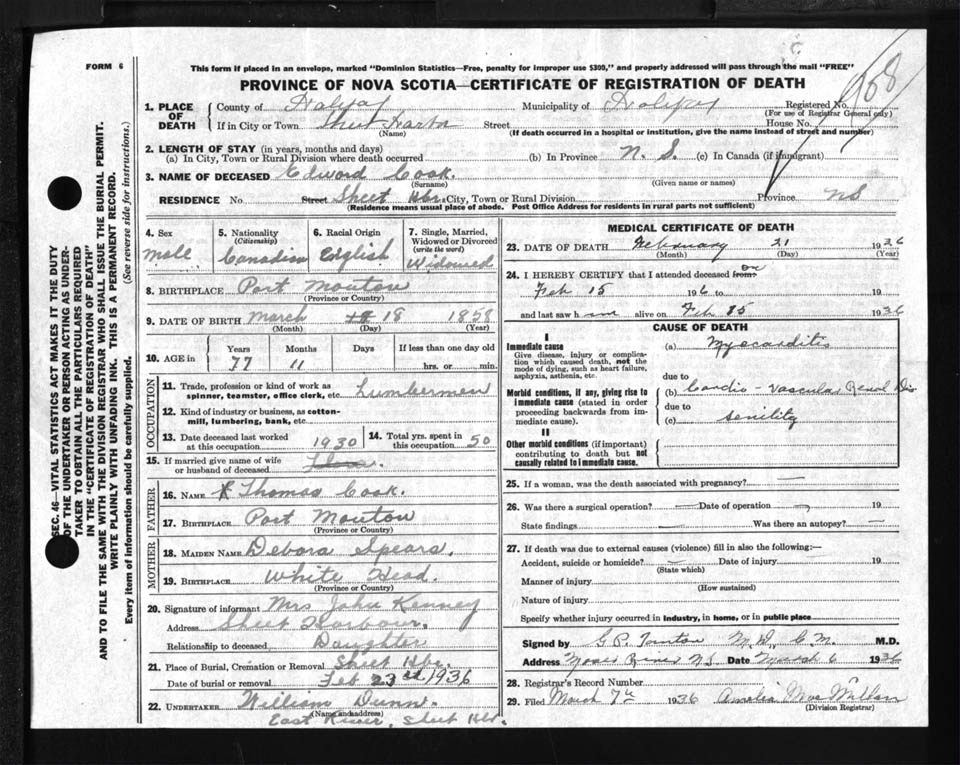 FORM 6
This form if placed in an envelope, marked "Dominion Statistics—Free, penalty for improper use $300," and properly addressed will pass through the mail "FREE"
PROVINCE OF NOVA SCOTIA—CERTIFICATE OF REGISTRATION OF DEATH
968
SEC. 46—VITAL STATISTICS ACT MAKES IT THE DUTY
OF THE UNDERTAKER OR PERSON ACTING AS UNDER-
TAKER TO OBTAIN ALL THE PARTICULARS REQUIRED
IN THE "CERTIFICATE OF REGISTRATION OF DEATH"
AND TO FILE THE SAME WITH THE DIVISION REGISTRAR WHO SHALL ISSUE THE BURIAL PERMIT.
WRITE PLAINLY WITH UNFADING INK. THIS IS A PERMANENT RECORD.
Every item of information should be carefully supplied. (See reverse side for instructions.)
1. PLACE OF DEATH
County of Halifax Municipality of Halifax Registered No.
(For use of Registrar General only)
If in City or Town Sheet Harbor Street House No.
(Name) (If death occurred in a hospital or institution, give the name instead of street and number)
2. LENGTH OF STAY (in years, months and days)
(a) In City, Town or Rural Division where death occurred (b) In Province N. S. (c) In Canada (if immigrant)
3. NAME OF DECEASED Edward Cook.
(Surname) (Given name or names)
RESIDENCE No. Street Sheet Hbr. City, Town or Rural Division Province NS
(Residence means usual place of abode. Post Office Address for residents in rural parts not sufficient)
4. Sex
Male
5. Nationality
(Citizenship)
Canadian
6. Racial Origin
English
7. Single, Married,
Widowed or Divorced
(write the word)
Widowed
8. BIRTHPLACE Port Mouton
(Province or Country)
9. DATE OF BIRTH March 18 1858
(Month) (Day) (Year)
10. AGE in
Years Months Days If less than one day old
77 11 hrs. or min.
OCCUPATION
11. Trade, profession or kind of work as
spinner, teamster, office clerk, etc. Lumberman
12. Kind of industry or business, as cotton-
mill, lumbering, bank, etc.
13. Date deceased last worked
at this occupation 1930
14. Total yrs. spent in
this occupation 50
15. If married give name of wife
or husband of deceased
FATHER
16. NAME Thomas Cook.
17. BIRTHPLACE Port Mouton
(Province or Country)
MOTHER
18. MAIDEN NAME Debora Spears.
19. BIRTHPLACE White Head.
(Province or Country)
20. Signature of informant Mrs John Kenney
Address Sheet Harbour.
Relationship to deceased Daughter
21. Place of Burial, Cremation or Removal Sheet Hbr.
Date of burial or removal Feb 23rd 1936
22. UNDERTAKER William Dunn.
(Name and address)
East River, Sheet Hbr.
MEDICAL CERTIFICATE OF DEATH
23. DATE OF DEATH February 21 1936
(Month) (Day) (Year)
24. I HEREBY CERTIFY that I attended deceased from on
Feb 15 1936 to 19
and last saw him alive on Feb 15 1936
CAUSE OF DEATH
I
Immediate cause
Give disease, injury or complica-
tion which caused death, not the
mode of dying, such as heart failure,
asphyxia, asthenia, etc.
(a) Myocarditis
due to
Morbid conditions, if any, giving rise to
immediate cause (stated in order
proceeding backwards from im-
mediate cause).
(b) Cardio-Vascular Renal Dis
due to
(c) Senility
II
Other morbid conditions (if important)
contributing to death but not
causally related to immediate cause.
25. If a woman, was the death associated with pregnancy? —
26. Was there a surgical operation? — Date of operation — 19
State findings Was there an autopsy? —
27. If death was due to external causes (violence) fill in also the following:—
Accident, suicide or homicide? — Date of injury 19
(State which)
Manner of injury
(How sustained)
Nature of injury
Specify whether injury occurred in industry, in home, or in public place
Signed by G P. M.D., C.M. M.D.
Address Moser River N.S. Date March 6 1936
28. Registrar's Record Number
29. Filed March 7th 1936 Amelia MacMillan
(Division Registrar)